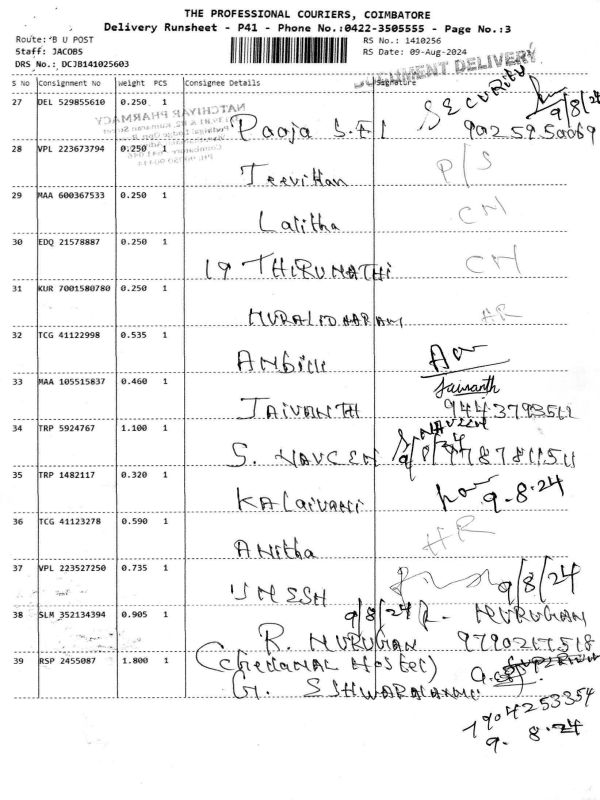 THE PROFESSIONAL COURIERS, COIMBATORE
Delivery Runsheet - P41 - Phone No.:0422-3505555 - Page No.:3
Route: B U POST
RS No.: 1410256
Staff: JACOBS
RS Date: 09-Aug-2024
DRS No.: DCJB141025603
DOCUMENT DELIVERY
S No Consignment No Weight PCS Consignee Details Signature
27 DEL 529855610 0.250 1 SECURITY 9/8/24
NATCHIYAR PHARMACY
Paoja S.F.I 9025950069
28 VPL 223673794 0.250 1
Jeevithan P/S
29 MAA 600367533 0.250 1
Lalitha CM
30 EDQ 21578887 0.250 1
19 THIRUMATHI CM
31 KUR 7001580780 0.250 1
MURALIDHARAN HR
32 TCG 41122998 0.535 1
33 MAA 105515837 0.460 1 Jaivanth
JAIVANTH 9443793511
34 TRP 5924767 1.100 1 NAVEEN
S. NAVEEN
35 TRP 1482117 0.320 1
KALAIVANI 9-8-24
36 TCG 41123278 0.590 1
ANitha HR
37 VPL 223527250 0.735 1
UMESH 9/8/24
38 SLM 352134394 0.905 1 9/8/24 R. MURUGAN
R. MURUGAN 9790217518
39 RSP 2455087 1.800 1
Hostel)
7904253354
9. 8.24